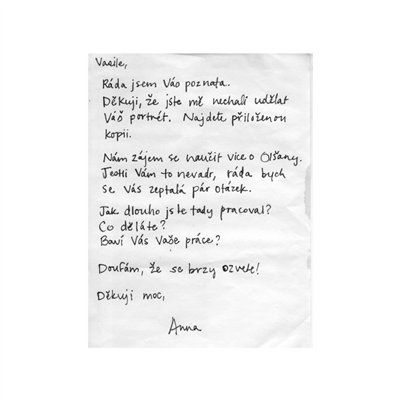 Vasile,
Ráda jsem Vás poznata.
Děkuji, že jste mě nechali udělat
Váš portrét. Najdete přiloženou
kopii.
Nám zájem se naučit více o Olšany.
Jestli Vám to nevadr, ráda bych
se Vás zeptala pár otázek.
Jak dlouho jste tady pracoval?
Co děláte?
Baví Vás Vaše práce?
Doufám, že se brzy ozvete!
Děkuji moc,
Anna